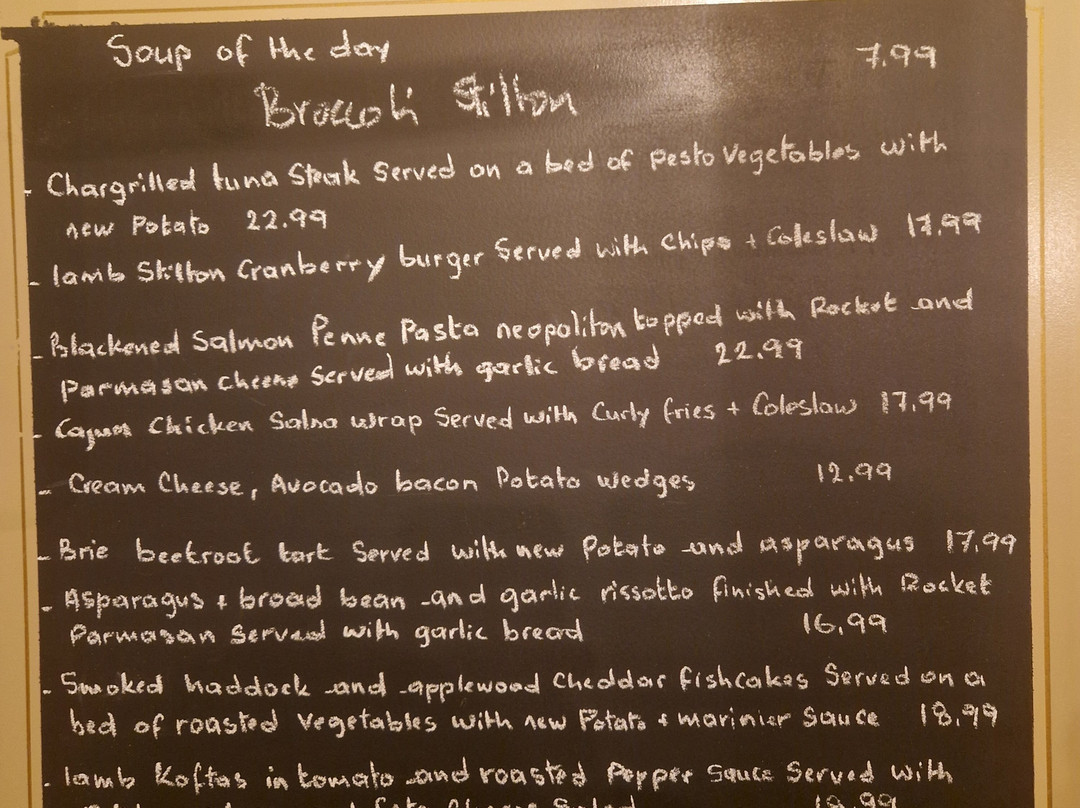 Soup of the day 7.99
Broccoli Stilton
- Chargrilled tuna Steak Served on a bed of pesto Vegetables with
new Potato 22.99
- lamb Stilton Cranberry burger Served with Chips + Coleslaw 17.99
- Blackened Salmon Penne Pasta neopoliton topped with Rocket and
Parmasan cheese Served with garlic bread 22.99
- Cajun Chicken Salsa wrap Served with Curly fries + Coleslaw 17.99
- Cream Cheese, Avocado bacon Potato wedges 12.99
- Brie beetroot tart Served with new Potato and asparagus 17.99
- Asparagus + broad bean and garlic rissotto finished with Rocket
Parmasan Served with garlic bread 16.99
- Smoked haddock and applewood Cheddar fishcakes Served on a
bed of roasted Vegetables with new Potato + marinier Sauce 18.99
- lamb Koftas in tomato and roasted Pepper Sauce Served with
Salad